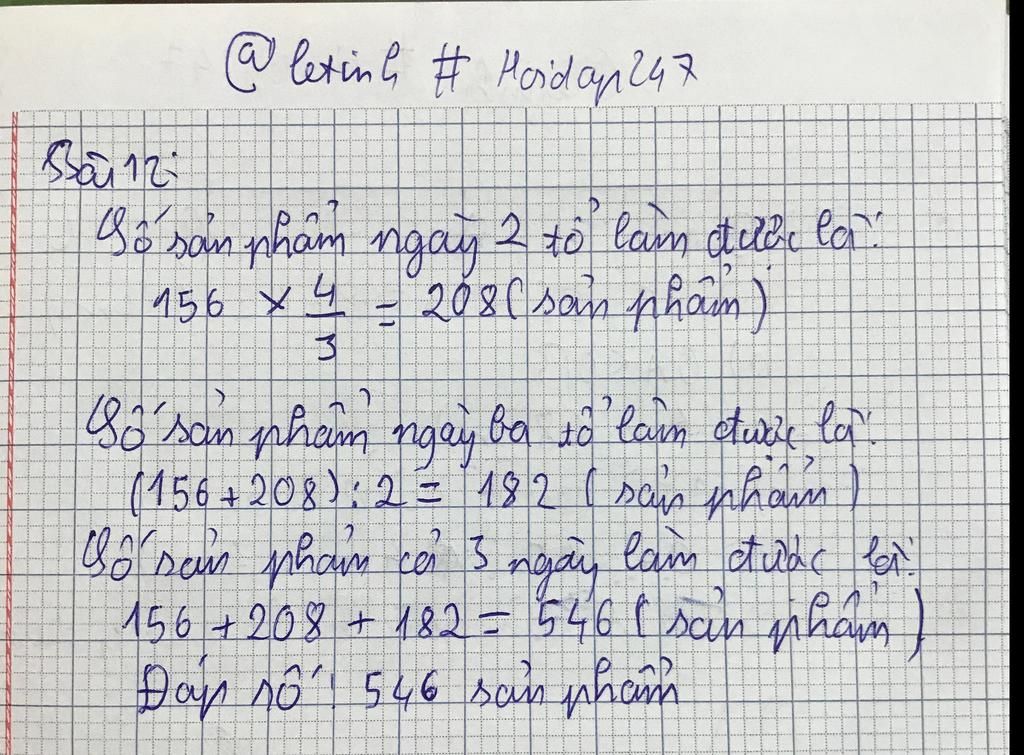 @letinh # Hoidap247
Bài 12:
Số sản phẩm ngày 2 tổ làm được là:
156 × 4/3 = 208 (sản phẩm)
Số sản phẩm ngày ba tổ làm được là:
(156 + 208) : 2 = 182 (sản phẩm)
Số sản phẩm cả 3 ngày làm được là:
156 + 208 + 182 = 546 (sản phẩm)
Đáp số: 546 sản phẩm